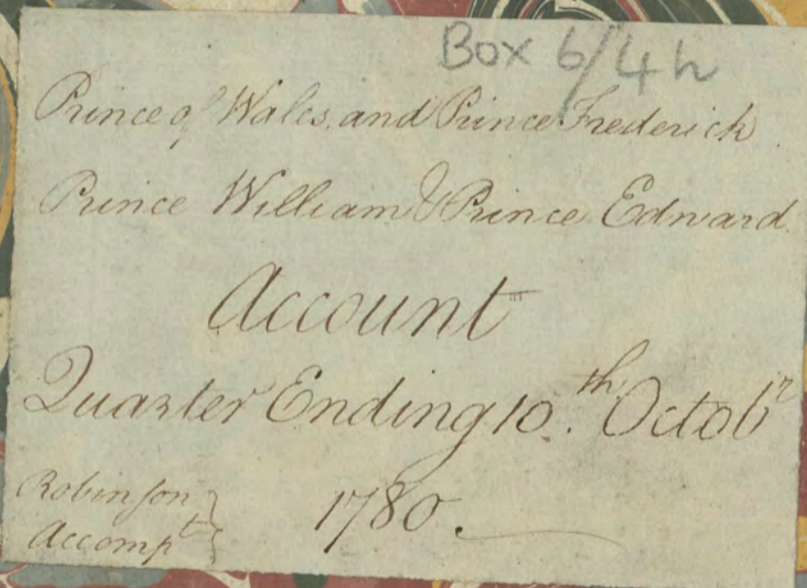 Box 6/4h
Prince of Wales, and Prince Frederick
Prince William & Prince Edward.
Account
Quarter Ending 10.th Octobr
Robinson
Accompt
1780.